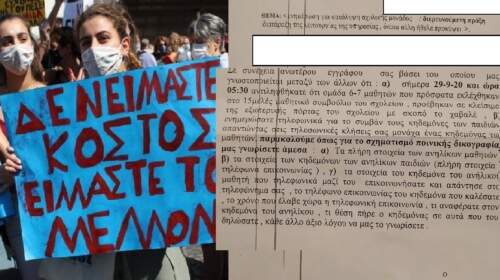 ΔΕΝ ΕΙΜΑΣΤΕ
ΚΟΣΤΟΣ
ΕΙΜΑΣΤΕ ΤΟ
ΜΕΛΛΟΝ
ΘΕΜΑ: «
για κατάληψη σχολικής μονάδος / διερευνώμενη πράξη
Σε συνέχεια ανωτέρου εγγράφου σας βάσει του οποίου μας
γνωστοποιείται μεταξύ των άλλων ότι : α) σήμερα 29-9-20 και ώρα
05:30 αντιληφθήκατε ότι ομάδα 6-7 μαθητών που πρόσφατα εκλέχθηκαν
στο 15μελές μαθητικό συμβούλιο του σχολείου , προέβηκαν σε κλείσιμο
της εξωτερικής πόρτας του σχολείου με σκοπό το χαβαλέ , β)
ενημερώσατε τηλεφωνικά για το συμβάν τους κηδεμόνων των παιδιών
απαντώντας στις τηλεφωνικές κλήσεις σας μονάχα ένας κηδεμόνας
μαθητή παρακαλούμε όπως για το σχηματισμό ποινικής δικογραφίας
μας γνωρίσετε άμεσα : α) Τα πλήρη στοιχεία των ανηλίκων μαθητών
β) τα στοιχεία των κηδεμόνων των ανηλίκων παιδιών (πλήρη στοιχεία
τηλέφωνα επικοινωνίας ) , γ) τα στοιχεία του κηδεμόνα του ανηλίκου
μαθητή που τηλεφωνικά μαζί του επικοινωνήσατε και απάντησε στο
τηλέφωνημα σας , το τηλέφωνο επικοινωνίας του κηδεμόνα που καλέσατε
, το χρόνο που έλαβε χώρα η τηλεφωνική επικοινωνία , τι αναφέρατε στον
κηδεμόνα του ανηλίκου , τι θέση πήρε ο κηδεμόνας σε αυτά που του
δηλώσατε , κάθε άλλο άξιο λόγου να μας το γνωρίσετε .